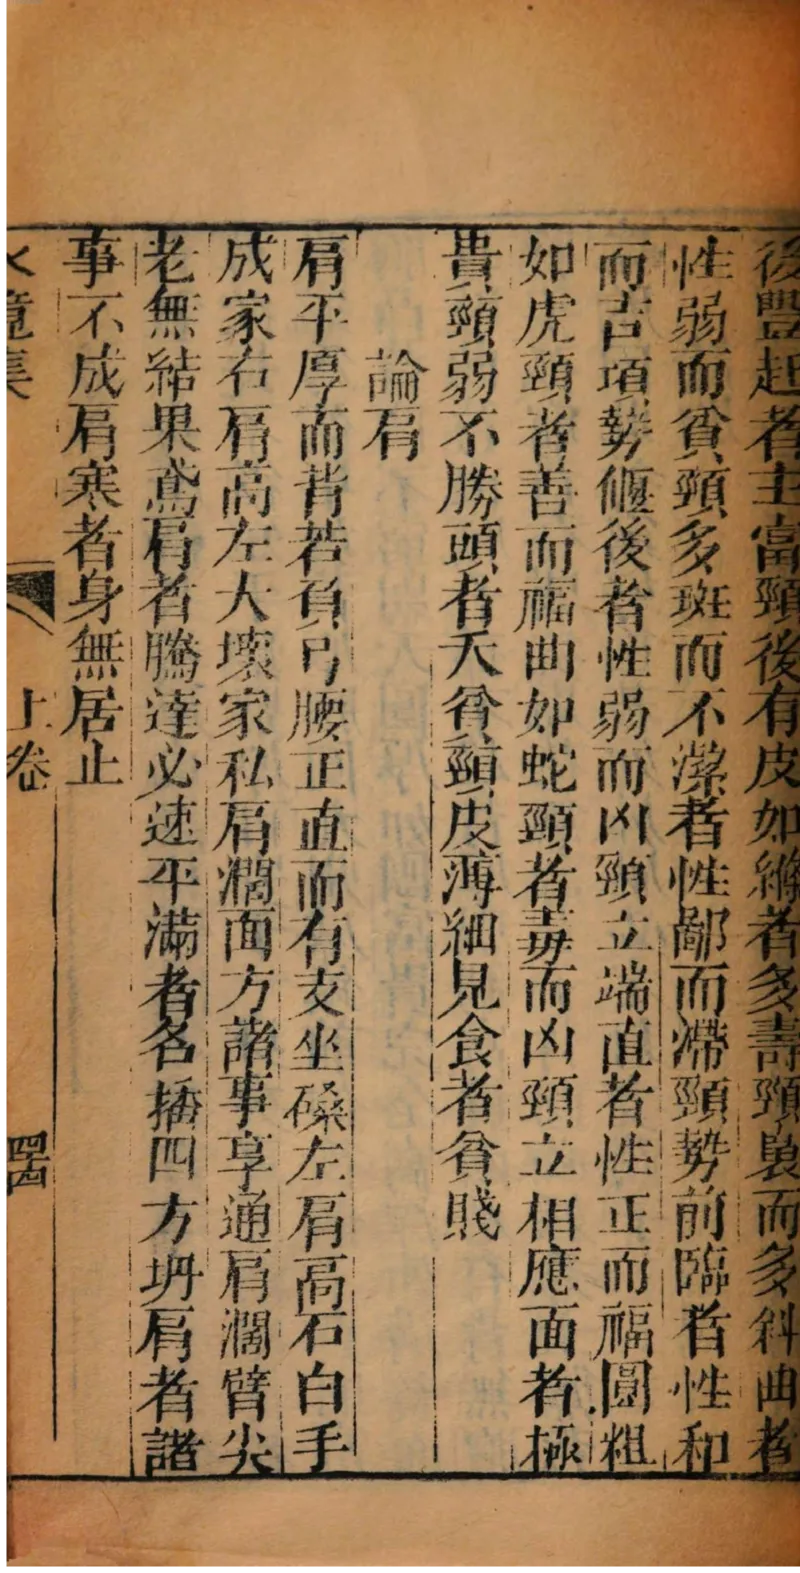 後豐起者主富頸後有皮如縧者多壽頸裊而多斜曲者
性弱而貧頸多斑而不潔者性鄙而滯頸勢前臨者性和
而吉項勢偃後者性弱而凶頸立端直者性正而福圓粗
如虎頸者善而福曲如蛇頸者毒而凶頸立相應面者極
貴頸弱不勝頭者夭貧頸皮薄細見食者貧賤
論肩
肩平厚而背若負弓腰正直而有支坐磉左肩高石白手
成家右肩高左大壞家私肩濶面方諸事享通肩濶臂尖
老無結果鳶肩者騰達必速平滿者名播四方坍肩者諸
事不成肩寒者身無居止
水鏡集
上卷
四古